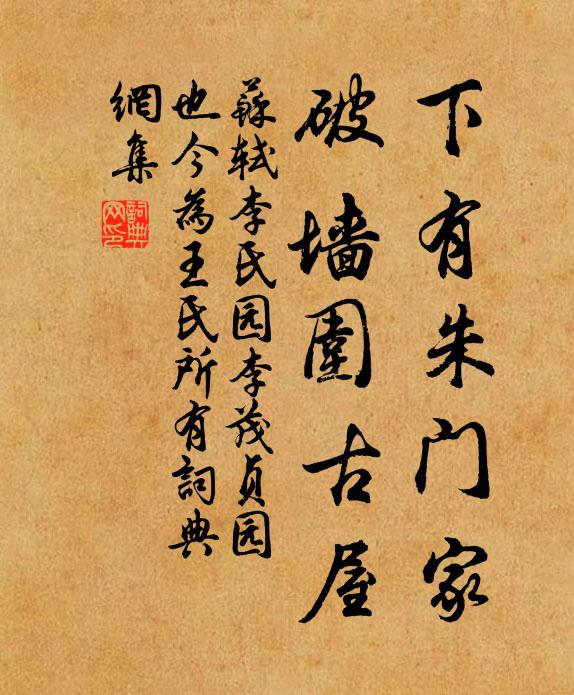 下有朱门家
破墙围古屋
蘇轼李氏园李茂贞园
也今為王氏所有詞典
網集
詞典
网印